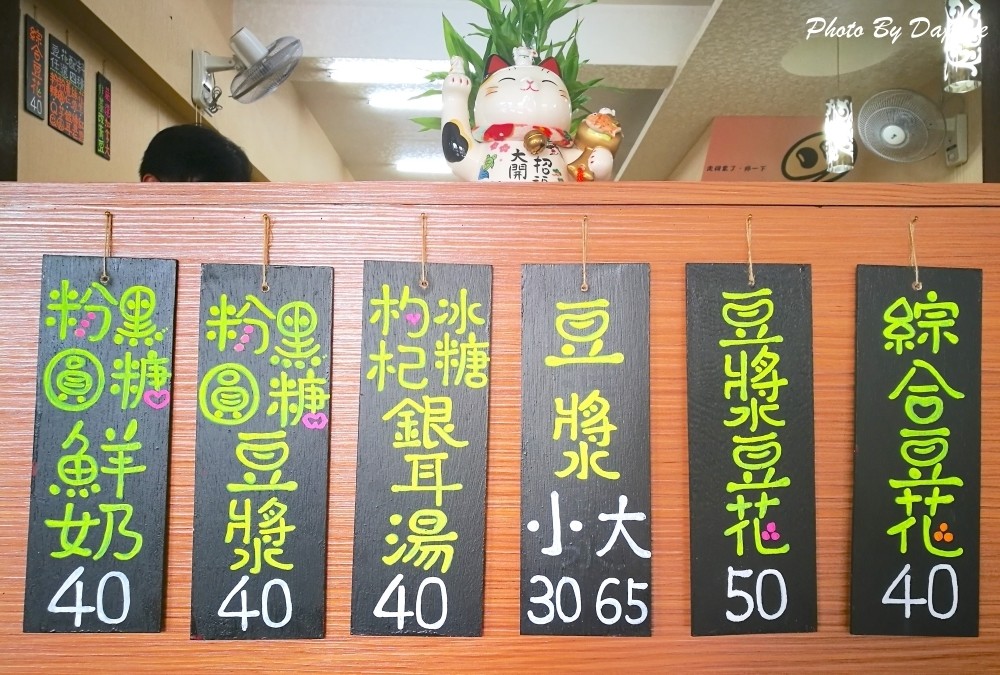 Photo By
綜合豆花
40
招福
大開
黑糖
粉圓
鮮奶
40
黑糖
粉圓
豆漿
40
冰糖
枸杞
銀耳湯
40
豆漿
小 大
30 65
豆漿豆花
50
綜合豆花
40